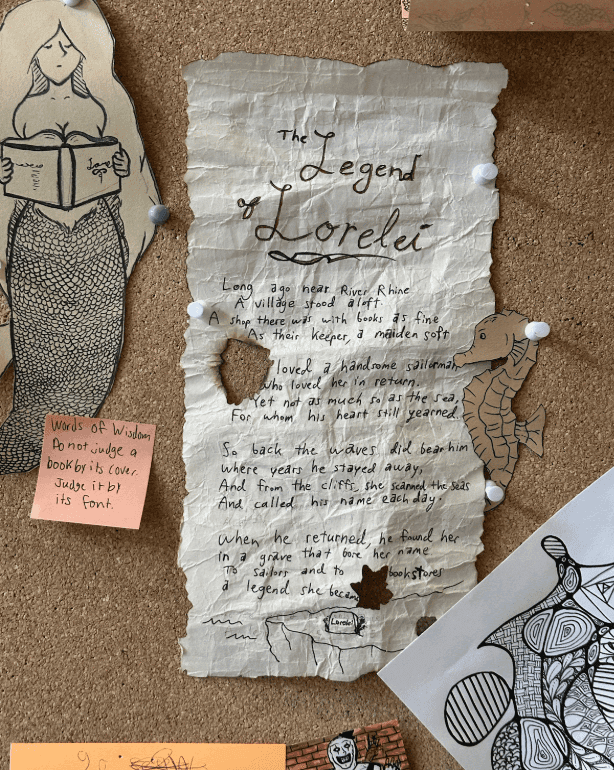 The Legend
of Lorelei
Long ago near River Rhine
A village stood aloft.
A shop there was with books as fine
As their keeper, a maiden soft
loved a handsome sailorman
who loved her in return.
Yet not as much so as the sea,
For whom his heart still yearned.
So back the waves did bear him
where years he stayed away,
And from the cliffs, she scanned the seas
And called his name each day.
When he returned, he found her
in a grave that bore her name
To sailors and to bookstores
a legend she became
Lorelei
Words of Wisdom
Do not judge a
book by its cover.
Judge it by
its font.
Love